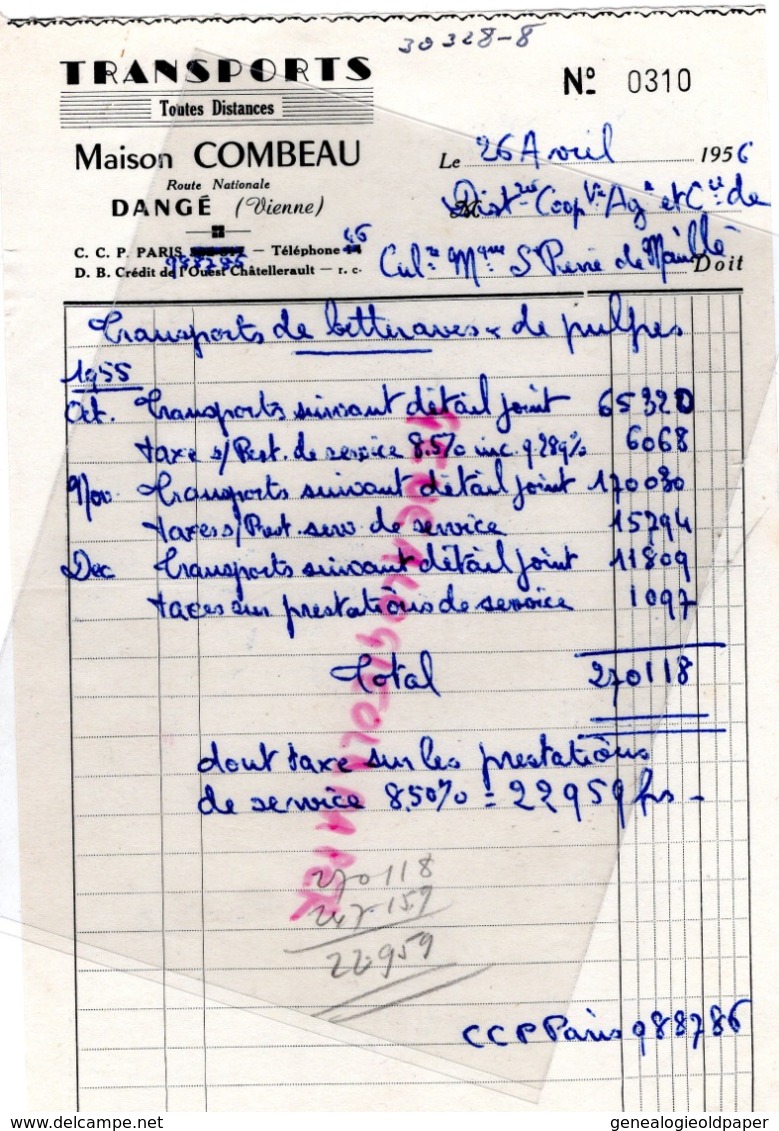 30328-8
TRANSPORTS
Toutes Distances
Nº 0310
Maison COMBEAU
Route Nationale
DANGÉ (Vienne)
Le 26 Avril 1956
Distie Coop Vle Agle et Cie de
C. C. P. PARIS 988786 — Téléphone 46
D. B. Crédit de l'Ouest Châtellerault — R. C.
Culre Mque St Pierre de Maillé Doit
Transports de betteraves & de pulpes
1955
Oct. Transports suivant détail joint 65320
taxe s/ Prest. de service 8.5% inc. 9.289% 6068
Nov. Transports suivant détail joint 170030
taxes s/ Prest. serv de service 15794
Dec Transports suivant détail joint 11809
taxes sur prestations de service 1097
Total 270118
dont taxe sur les prestations
de service 8,50% = 22959 frs -
270118
247.159
22.959
CCP Paris 988786
GENEALOGIEOLDPAPER
delcampe.net
genealogieoldpaper